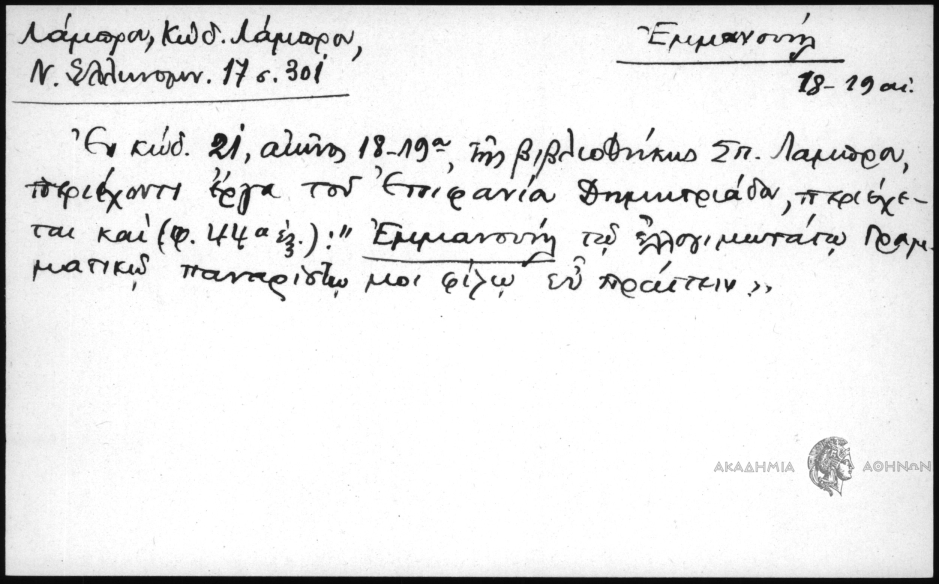 Λάμπρου, Κώδ. Λάμπρου,
Ν. Ἑλληνομν. 17 σ. 301
Ἐμμανουήλ
18-19 αἰ.
Ἐν κώδ. 21, αἰῶνος 18-19ου, τῆς βιβλιοθήκης Σπ. Λάμπρου,
περιέχοντι ἔργα τοῦ Ἐπιφανία Δημητριάδου, περιέχε-
ται καὶ (φ. 44α ἑξ.): " Ἐμμανουὴλ τῷ ἐλλογιμωτάτῳ Γραμ-
ματικῷ παναρίστῳ μοι φίλῳ εὖ πράττειν »
ΑΚΑΔΗΜΙΑ ΑΘΗΝΩΝ